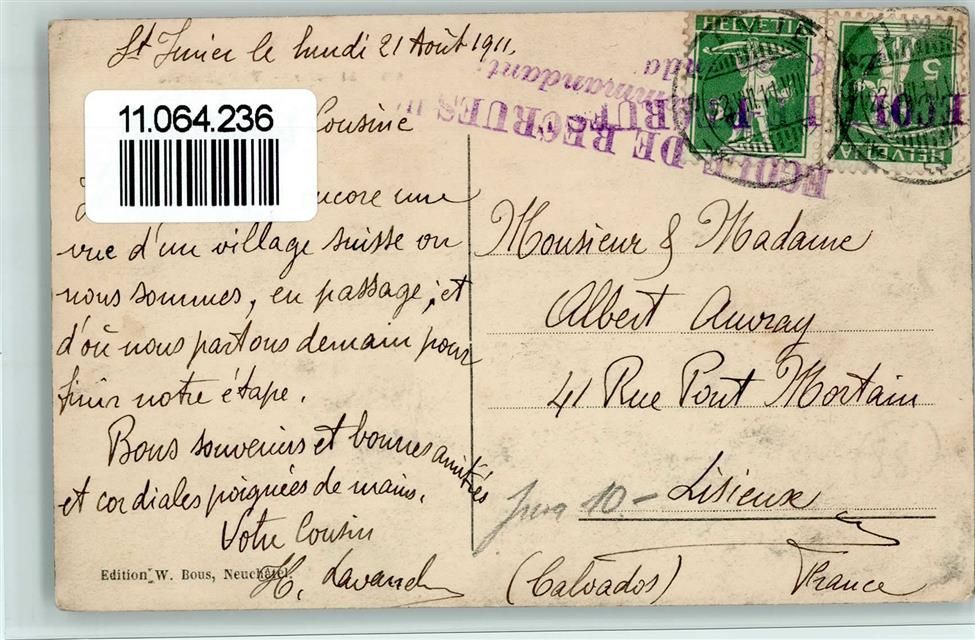 St Imier le lundi 21 Août 1911.
11.064.236
Cousine
encore une
vue d'un village suisse ou
nous sommes, en passage, et
d'où nous partons demain pour
finir notre étape.
Bons souvenirs et bonnes amitiés
et cordiales poignées de mains.
Votre Cousin
H. Lavand
Edition W. Bous, Neuchâtel.
HELVETIA
HELVETIA
5
ECOLE DE RECRUES
Commandant
ECOL
Monsieur & Madame
Albert Auvray
41 Rue Pont Mortain
Lisieux
(Calvados) France
Jura 10.-